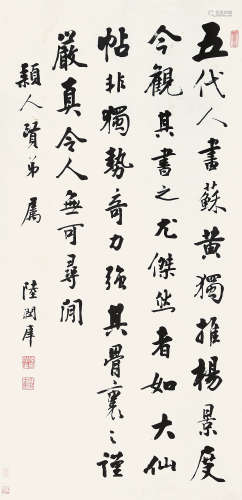 五代人書蘇黃獨推楊景度
今觀其書之尤傑然者如大仙
帖非獨勢奇力強其骨裏〻謹
嚴真令人無可尋閒
穎人賢弟 屬
陸潤庠